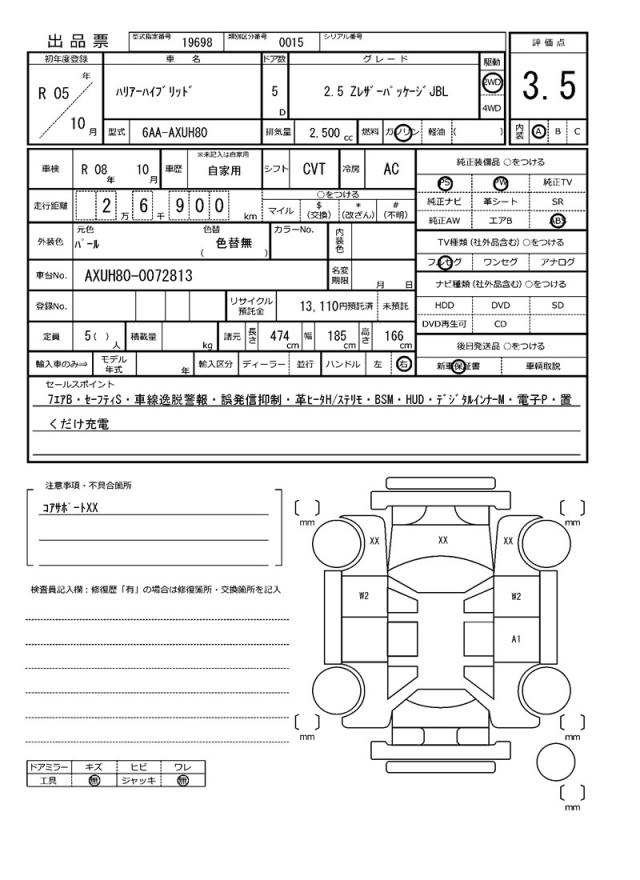 出品票 型式指定番号 19698 類別区分番号 0015 シリアル番号
評価点
3.5
内装 A B C
初年度登録 車名 ドア数 グレード 駆動
R 05 年 10 月
ハリアーハイブリッド 5 D 2.5 Zレザーパッケージ JBL 2WD 4WD
型式 6AA-AXUH80 排気量 2,500 cc 燃料 ガソリン 軽油 ( )
車検 R 08 年 10 月 車歴 ※未記入は自家用 自家用 シフト CVT 冷房 AC
走行距離 2 万 6 千 9 0 0 km
○をつける
マイル $ (交換) * (改ざん) # (不明)
外装色 元色 パール 色替 色替無 ( ) カラーNo. 内装色
車台No. AXUH80-0072813 名変期限 月 日
登録No. リサイクル預託金 13,110円預託済 未預託
定員 5( ) 人 積載量 kg 諸元 長さ 474 cm 幅 185 cm 高さ 166 cm
輸入車のみ⇒ モデル年式 年 輸入区分 ディーラー 並行 ハンドル 左 右
純正装備品 ○をつける
PS PW 純正TV
純正ナビ 革シート SR
純正AW エアB ABS
TV種類 (社外品含む) ○をつける
フルセグ ワンセグ アナログ
ナビ種類 (社外品含む) ○をつける
HDD DVD SD
DVD再生可 CD
後日発送品 ○をつける
新車保証書 車輌取説
セールスポイント
7エアB・セーフティS・車線逸脱警報・誤発信抑制・革ヒータH/ステリモ・BSM・HUD・デジタルインナーM・電子P・置
くだけ充電
注意事項・不具合箇所
コアサポートXX
検査員記入欄：修復歴「有」の場合は修復箇所・交換箇所を記入
ドアミラー キズ ヒビ ワレ
工具 無 ジャッキ 無
mm mm
XX XX XX
W2 W2
A1
mm mm
mm